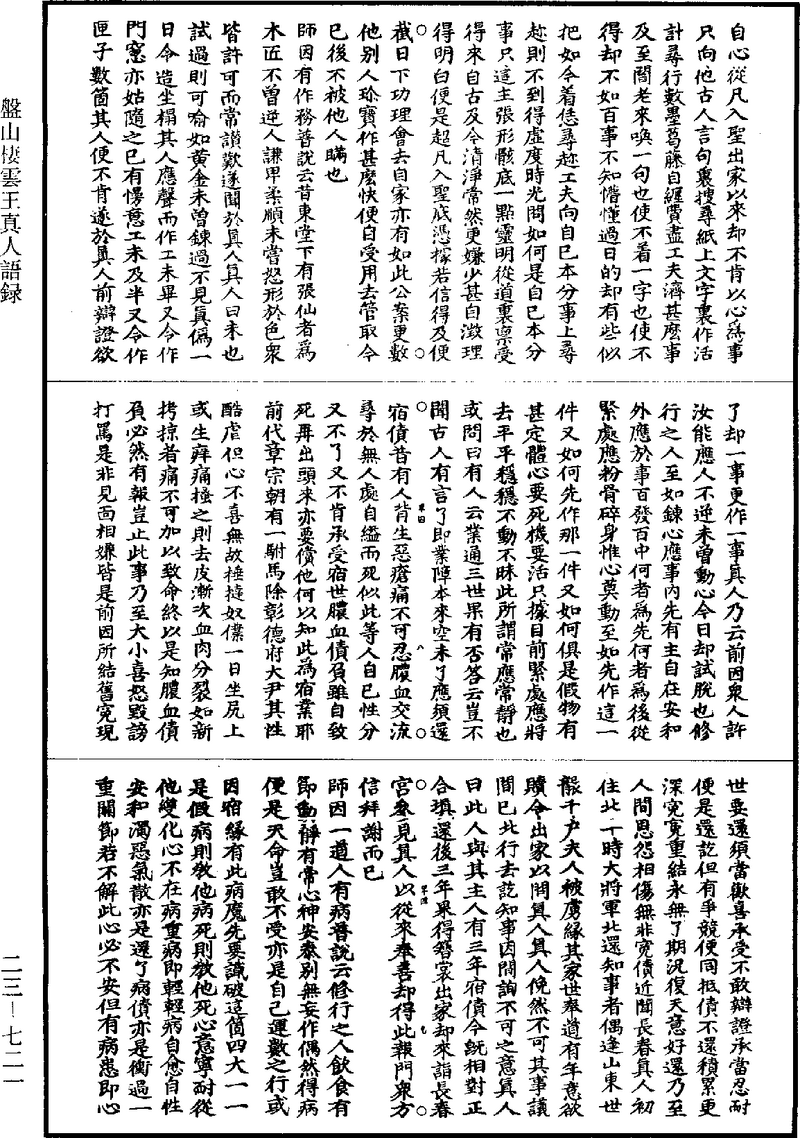 自心從凡入聖出家以來却不肯以心爲事
只向他古人言句裏搜尋紙上文字裏作活
計尋行數墨葛藤自纏費盡工夫濟甚麽事
及至閻老來喚一句也使不着一字也使不
得却不如百事不知懵懂過日的却有些似
把如今着恁尋趂工夫向自已本分事上尋
趂則不到得虛度時光問如何是自己本分
事只這主張形骸底一點靈明從道裏禀受
得來自古及今清淨常然更嫌少甚自澂理
得明白便是超凡入聖底憑據若信得及便
截日下功理會去自家亦有如此公案更數
他別人珎寶作甚麽快便自受用去管取今
已後不被他人瞞也
師因有作務普說云昔東堂下有張仙者爲
木匠不曾逆人謙卑柔順未嘗怒形於色衆
皆許可而當讚歎遂聞於眞人眞人曰未也
試過則可喩如黃金未曾鍊過不見眞僞一
日令造坐榻其人應聲而作工未畢又令作
門窻亦姑隨之已有慢意工未及半又令作
匣子數箇其人便不肯遂於眞人前辯證欲
了却一事更作一事眞人乃云前因衆人許
汝能應人不逆未曾動心今日却試脫也修
行之人至如鍊心應事內先有主自在安和
外應於事百發百中何者爲先何者爲後從
緊處應粉骨碎身惟心莫動至如先作這一
件又如何先作那一件又如何俱是假物有
甚定體心要死機要活只據目前緊處應將
去平平穩穩不動不昧此所謂常應常靜也
或問曰有人云業通三世果有否答云豈不
聞古人有言了即業障本來空未了應須還
宿債昔有人背生惡瘡痛不可忍膿血交流
尋於無人處自縊而死似此等人自已性分
又不了又不肯承受宿世膿血債負雖自致
死再出頭來亦要償他何以知此爲宿業耶
前代章宗朝有一駙馬除彰德府大尹其性
酷虐但心不喜無故捶撻奴僕一日坐尻上
或生癬痛搔之則去皮漸次血肉分裂如新
拷掠者痛不可加以致命終以是知膿血債
負必然有報豈止此事乃至大小喜怒毀謗
打罵是非見面相嫌皆是前因所結舊寃現
世要還須當歡喜承受不敢辯證承當忍耐
便是還訖但有爭競便同抵債不還積累更
深寃寃重結永無了期況復天意好還乃至
人間恩怨相傷無非寃債近聞長春眞人初
住北二十時大將軍北還知事者偶逢山東世
襲千户夫人被虜緣其家世奉道有年意欲
贖令出家以問眞人眞人俛然不可其事議
間已北行去訖知事因問詢不可之意眞人
曰此人與其主人有三年宿債今旣相對正
合填還後三年果得簪裳出家却來詣長春
宮參見眞人以從來奉善却得此報門衆方
信拜謝而已
師因一道人有病普說云修行之人飲食有
節動靜有常心神安泰别無妄作偶然得病
便是天命豈敢不受亦是自己運數之行或
因宿緣有此病魔先要識破這箇四大一一
是假病則敎他病死則敎他死心意寧耐從
他變化心不在病重病即輕輕病自愈自性
安和濁惡氣散亦是還了病債亦是衝過一
重關節若不解此心必不安但有病患即心
盤山棲雲王真人語録
二三－七二一